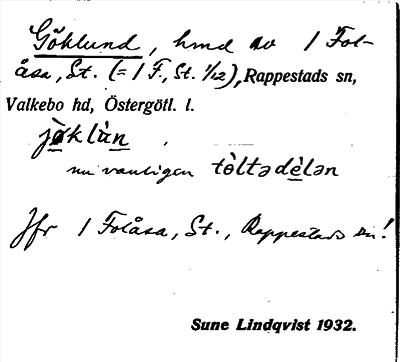 Göklund, hmd av 1 Fol-
åsa, St. (= 1 F., St. 1/12), Rappestads sn,
Valkebo hd, Östergötl. l.
jø̀klùn
nu vanligen tòltadèlən
Jfr 1 Folåsa, St., Rappestads sn!
Sune Lindqvist 1932.